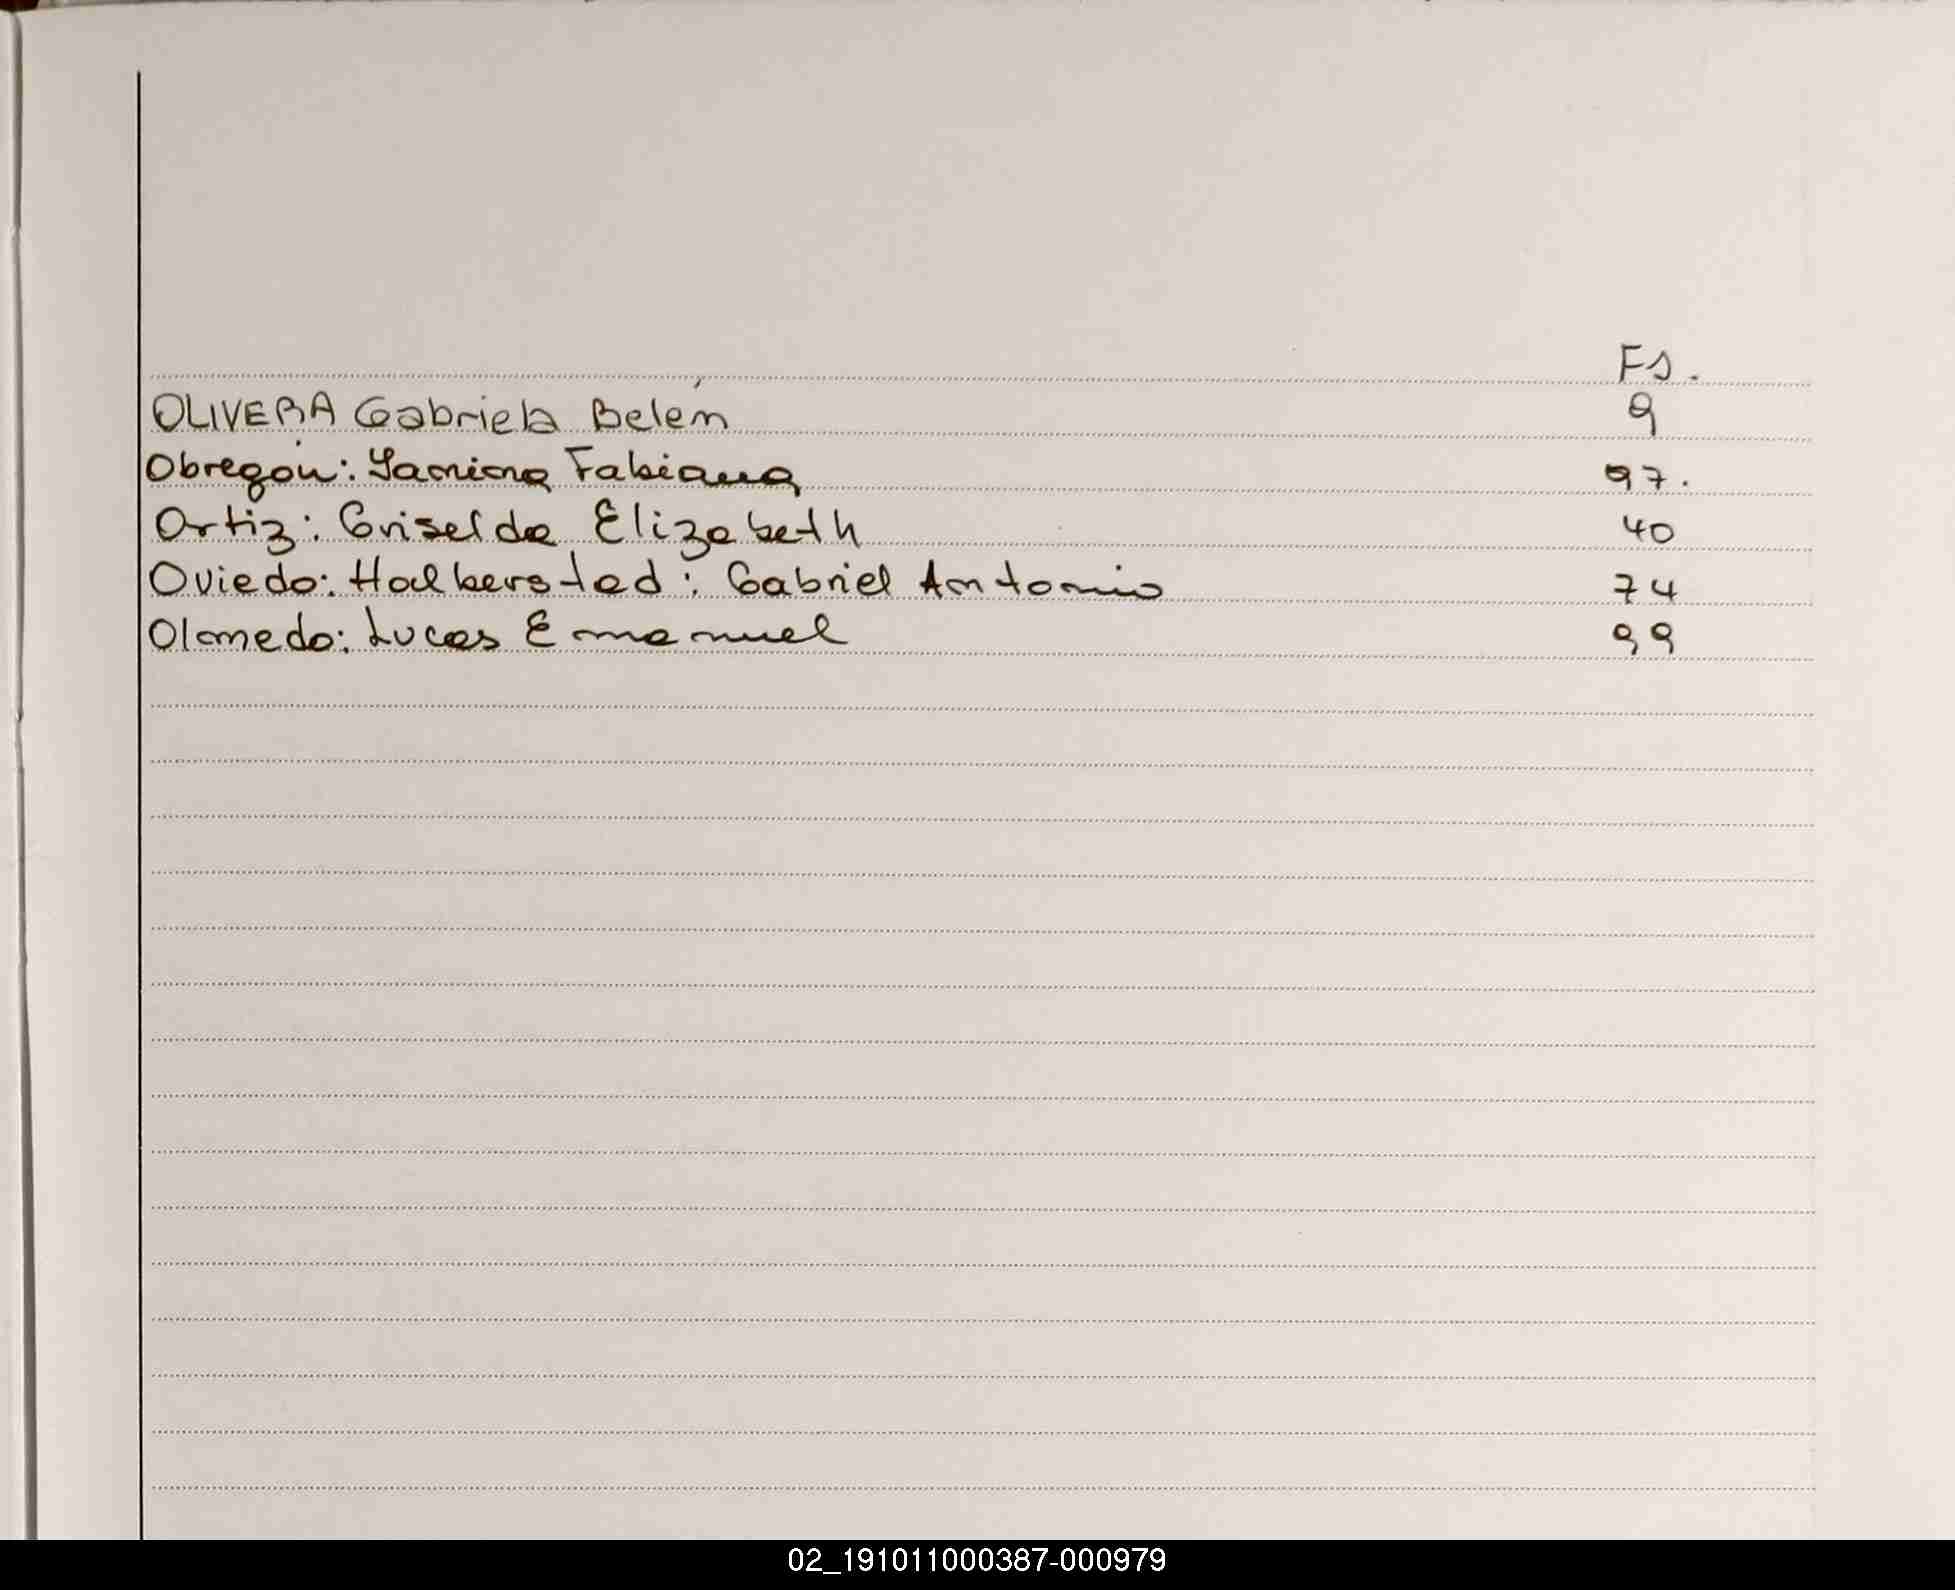 Fs.
OLIVERA Gabriela Belén 9
Obregón: Yamina Fabiana 97.
Ortiz: Griselda Elizabeth 40
Oviedo: Halbersted: Gabriel Antonio 74
Olmedo: Lucas Emanuel 99
02_191011000387-000979